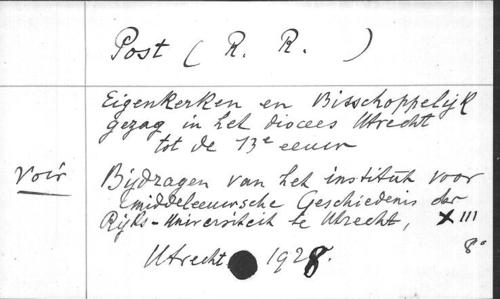 Post (R. R. )
Eigenkerken en Bisschoppelijk
gezag in het diocees Utrecht
tot de 13e eeuw
Voir Bijdragen van het instituut voor
middeleeuwsche Geschiedenis der
Rijks-Universiteit te Utrecht, XIII
8°
Utrecht 1928.